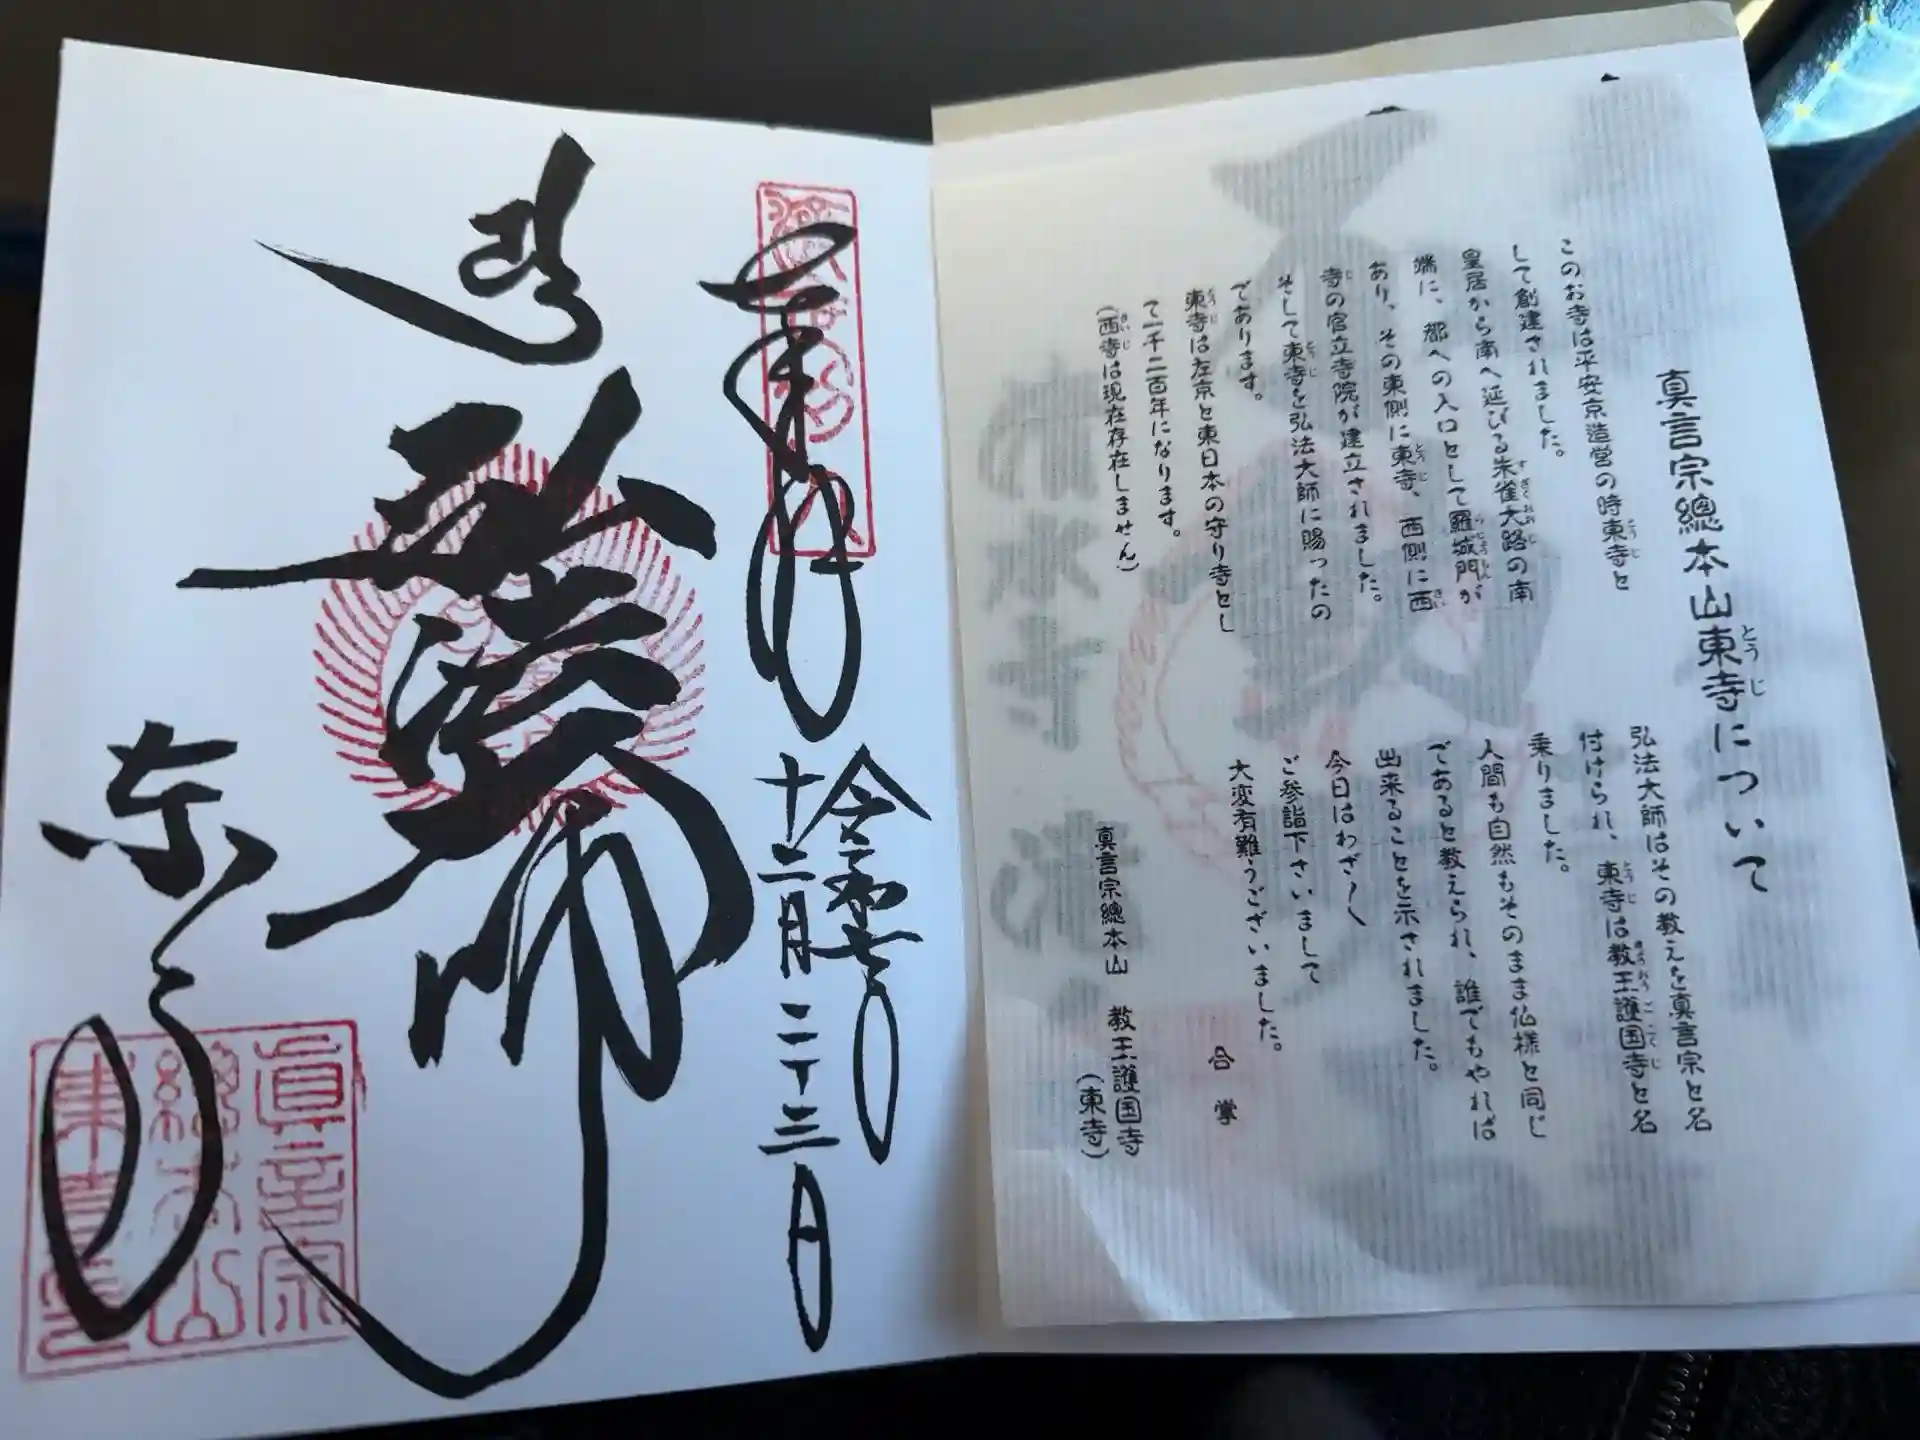 真言宗總本山東寺について
とうじ
このお寺は平安京造営の時東寺と
とうじ
して創建されました。
皇居から南へ延びる朱雀大路の南
すざくおおじ
端に、都への入口として羅城門が
らじょうもん
あり、その東側に東寺、西側に西
とうじ
さい
寺の官立寺院が建立されました。
じ
そして東寺を弘法大師に賜ったの
とうじ
であります。
東寺は左京と東日本の守り寺とし
とうじ
て一千二百年になります。
(西寺は現在存在しません)
さいじ
弘法大師はその教えを真言宗と名
付けられ、東寺は教王護国寺と名
とうじ
きょうおうごこくじ
乗りました。
人間も自然もそのまま仏様と同じ
であると教えられ、誰でもやれば
出来ることを示されました。
今日はわざ〳〵
ご参詣下さいまして
大変有難うございました。
合掌
真言宗總本山 教王護国寺
(東寺)
奉拝
令和七年
十二月二十三日
弘法大師
東寺
眞言宗
總本山
東寺印